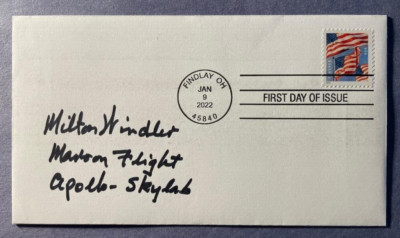 FINDLAY OH
JAN
9
2022
45840
FIRST DAY OF ISSUE
Milton Windler
Maroon Flight
Apollo - Skylab